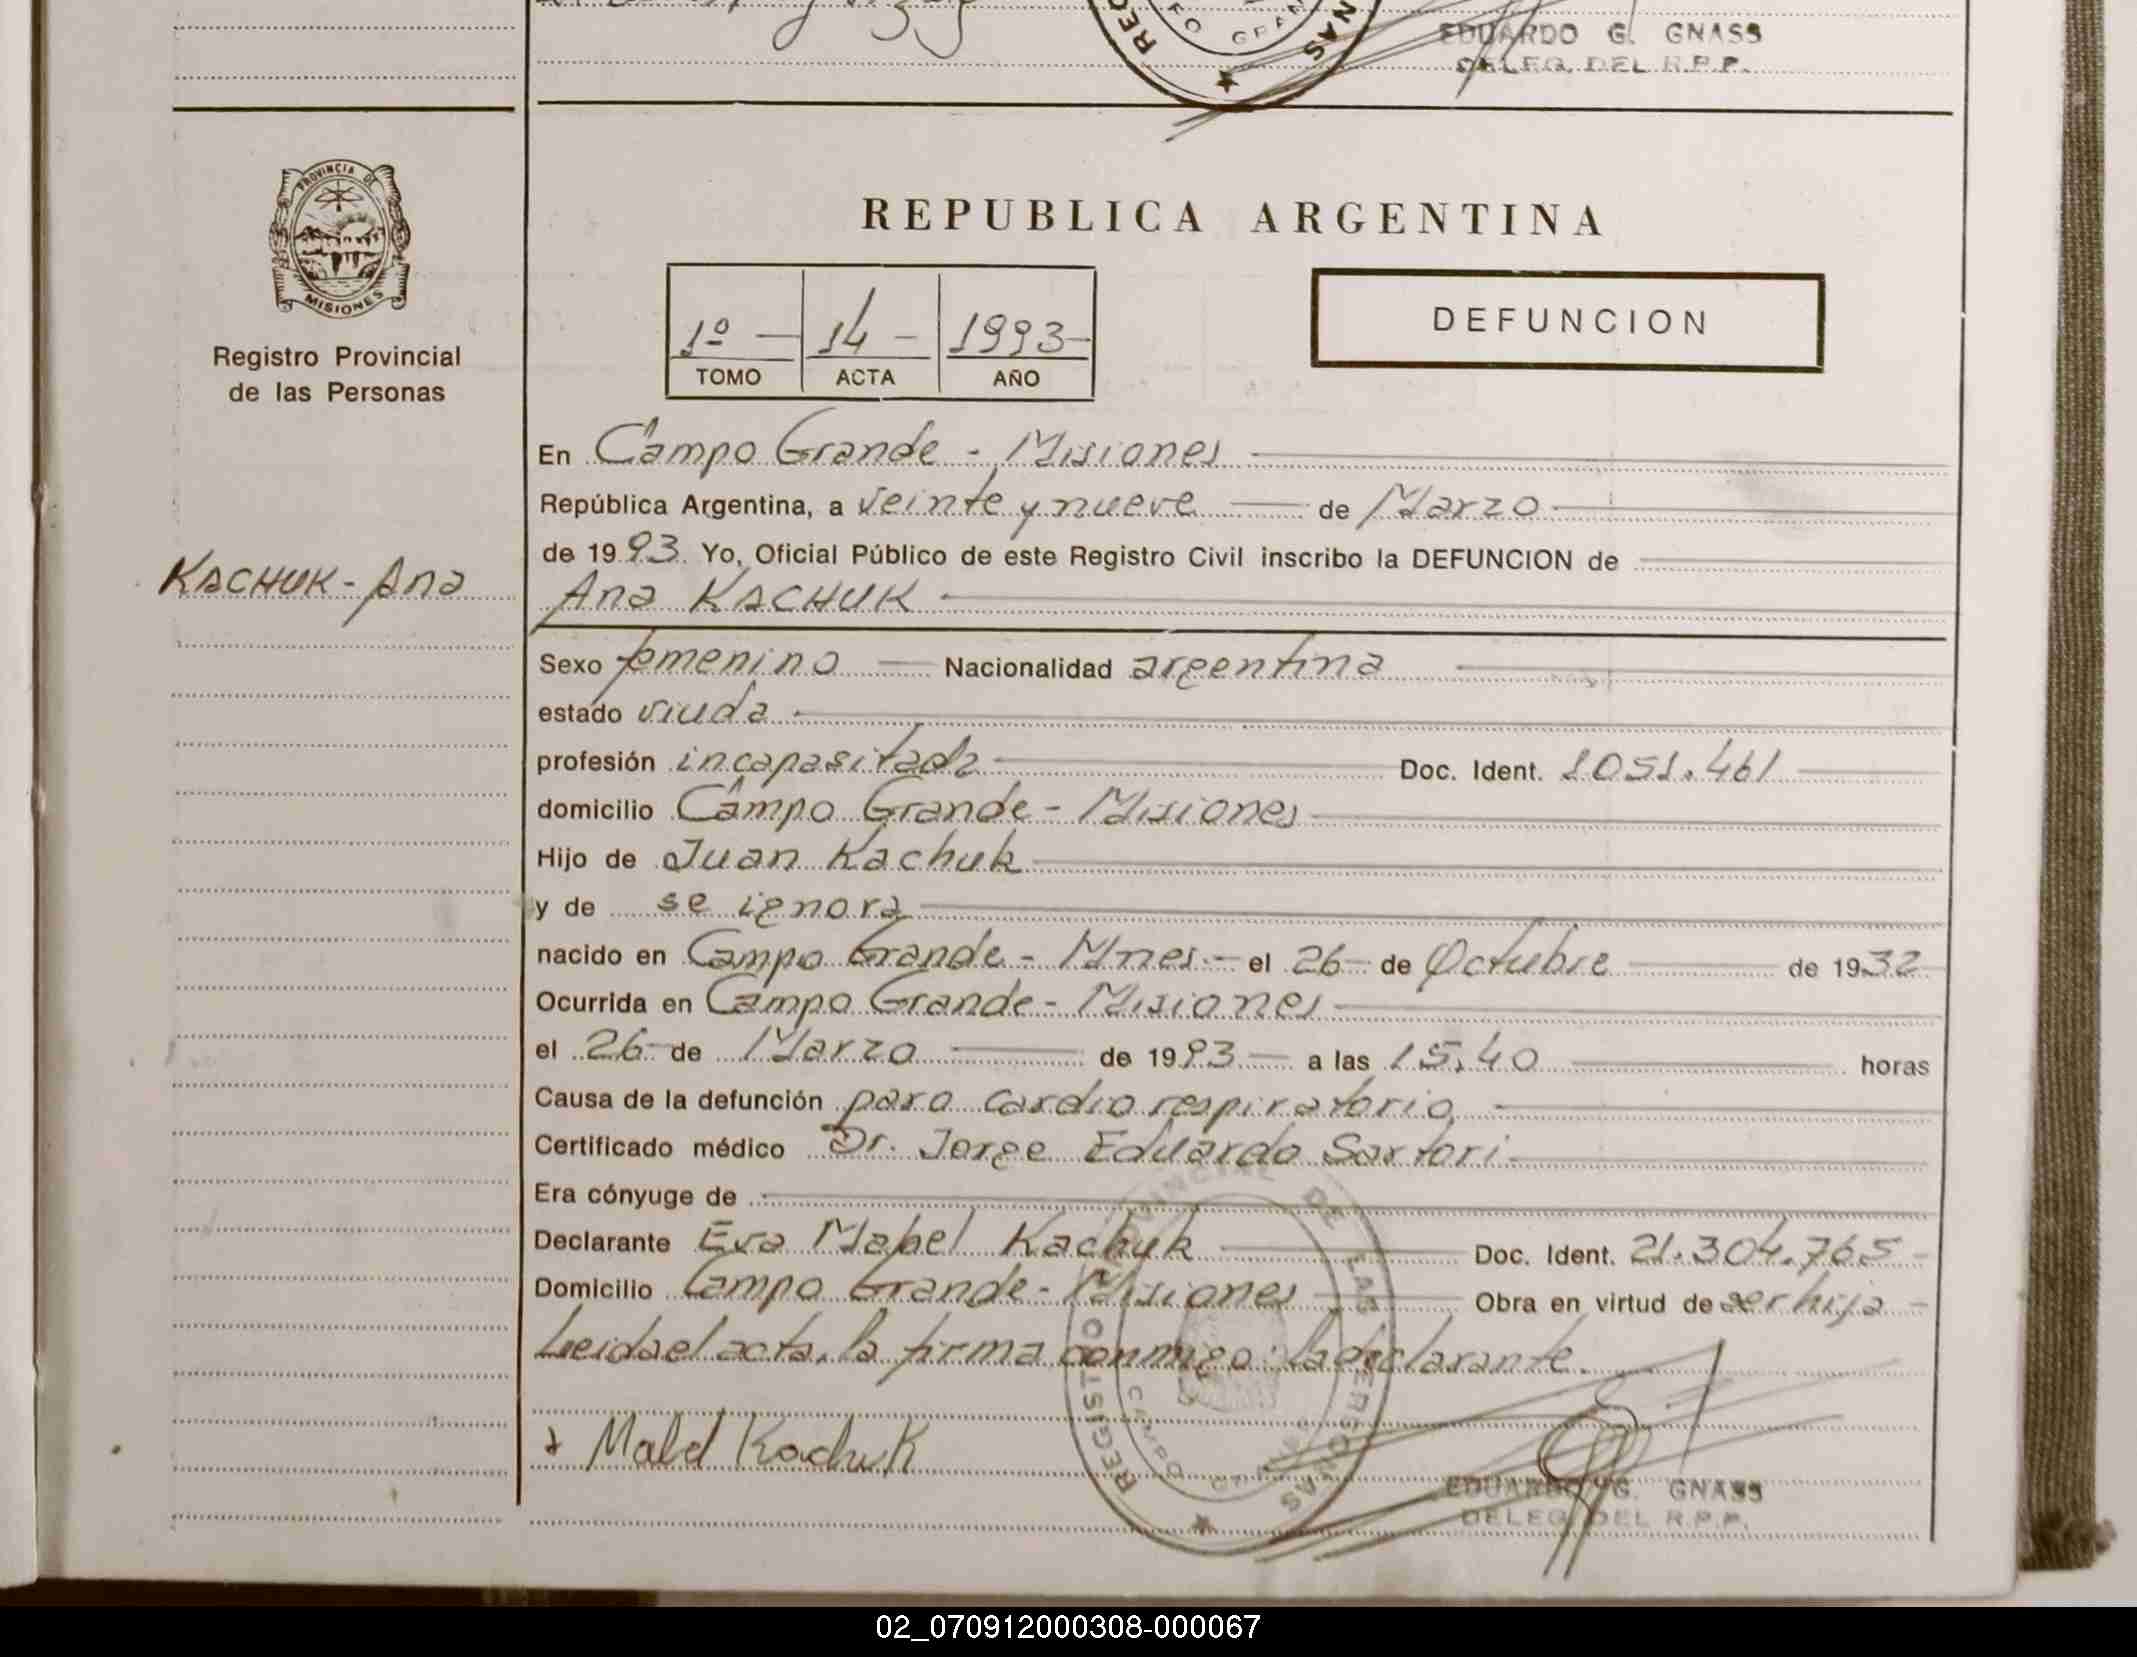 EDUARDO G. GNASS
DELEG. DEL R.P.P.
PROVINCIA DE
MISIONES
Registro Provincial
de las Personas
REPUBLICA ARGENTINA
1º - 14 - 1993-
TOMO ACTA AÑO
DEFUNCION
En Campo Grande - Misiones
República Argentina, a veinte y nueve de Marzo
de 1993. Yo, Oficial Público de este Registro Civil inscribo la DEFUNCION de
KACHUK - Ana
Ana KACHUK
Sexo femenino Nacionalidad argentina
estado viuda
profesión incapasitada Doc. Ident. 1051.461
domicilio Campo Grande - Misiones
Hijo de Juan Kachuk
y de se ignora
nacido en Campo Grande - Mnes. - el 26 de Octubre de 1932
Ocurrida en Campo Grande - Misiones
el 26 de Marzo de 1993 a las 15.40 horas
Causa de la defunción paro cardiorespiratorio
Certificado médico Dr. Jorge Eduardo Sartori
Era cónyuge de
Declarante Eva Mabel Kachuk Doc. Ident. 21.304.765
Domicilio Campo Grande - Misiones Obra en virtud de ser hija
Leida el acta, la firma conmigo: la declarante.
Mabel Kachuk
REGISTRO PROVINCIAL DE LAS PERSONAS
CAMPO GRANDE
EDUARDO G. GNASS
DELEG. DEL R.P.P.
02_070912000308-000067